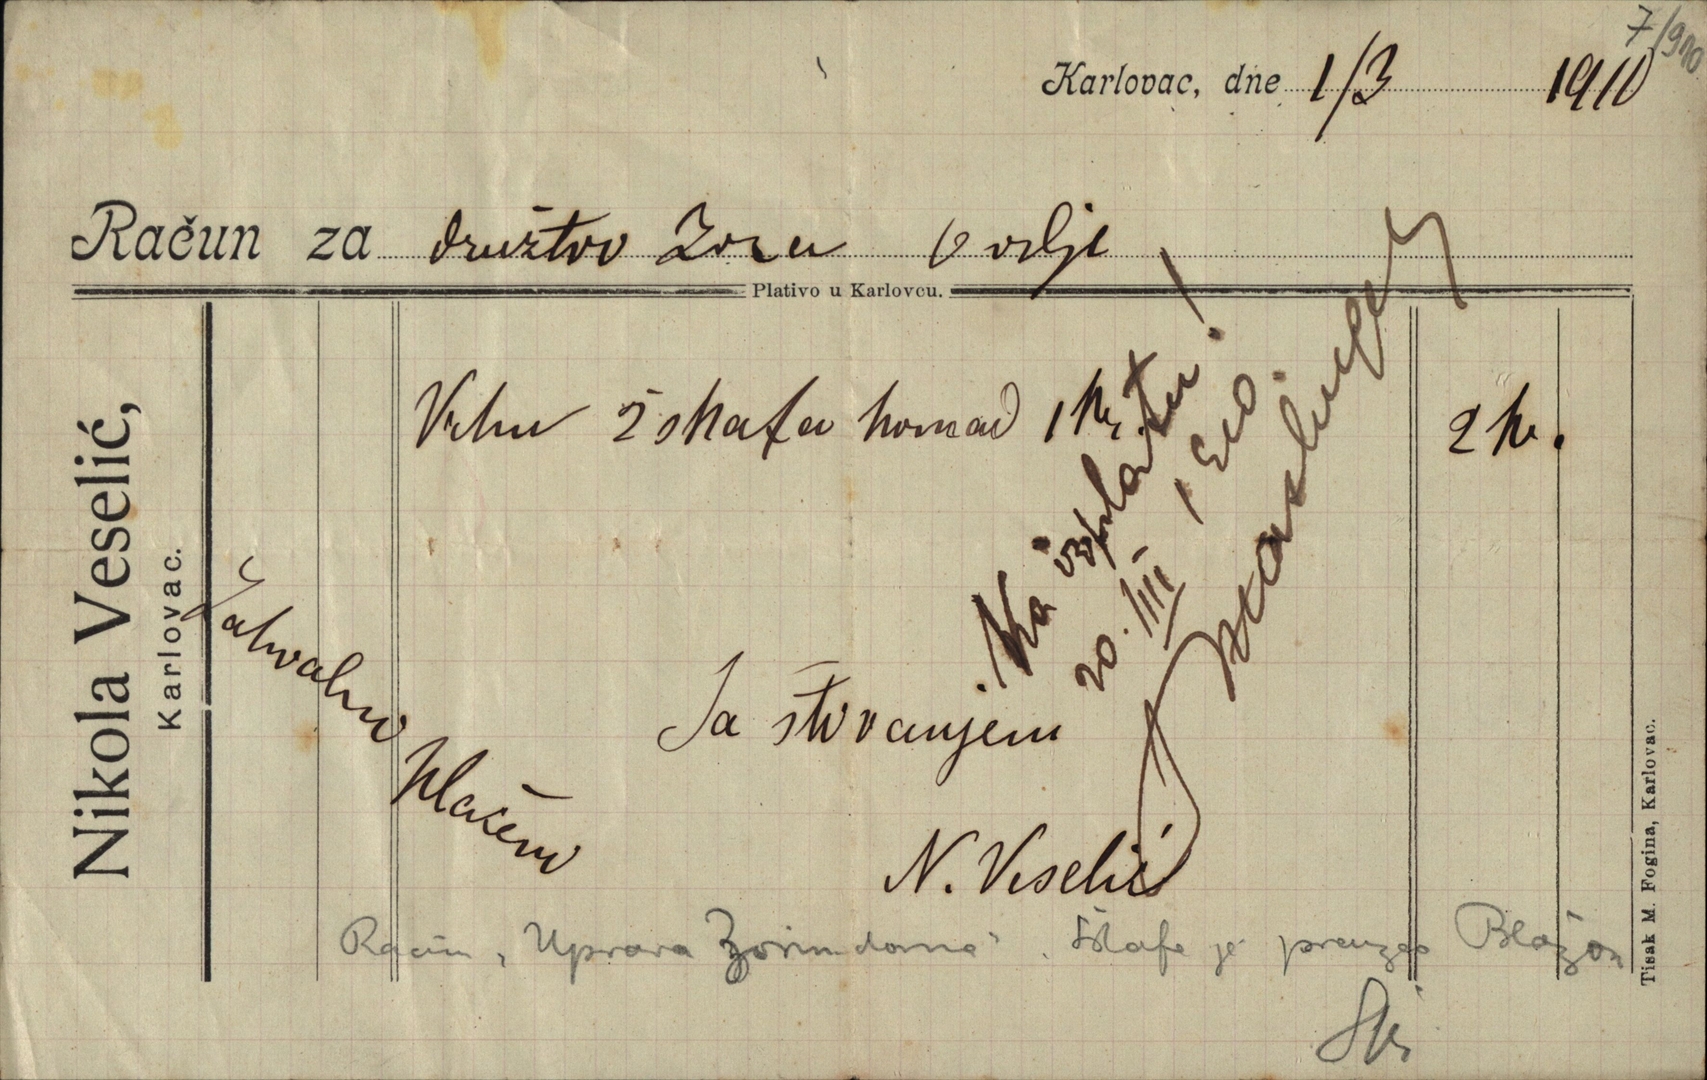 7/910
Karlovac, dne 1/3 1910
Račun za družtvo Zora ovdje
Plativo u Karlovcu.
Nikola Veselić,
Karlovac.
Vrhu 2 skafa komad 1 Kr. 2 kr.
Na isplatu!
20. III 1910.
Zahvalno
plaćeno
Sa štovanjem
N. Veselić
Račun „Uprava Zorin doma“. Škafe je preuzeo Blažon
Tisak M. Fogina, Karlovac.